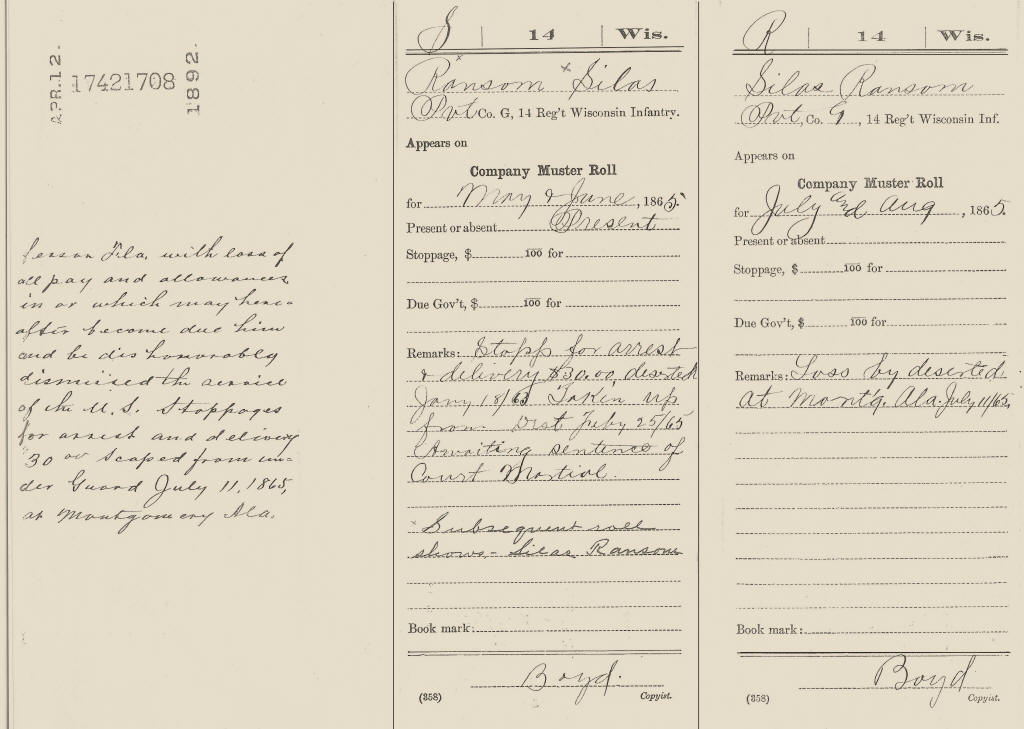 APR. 12. 17421708 1892.
ferson Fla. with loss of
all pay and allowances
in or which may here-
after become due him
and be dishonorably
dismissed the service
of the U.S. Stoppages
for arrest and delivery
30 00 Scaped from un-
der Guard July 11, 1865,
at Montgomery Ala.
S | 14 | Wis.
Ransom × Silas
Pvt Co. G, 14 Reg't Wisconsin Infantry.
Appears on
Company Muster Roll
for May & June, 1865.
Present or absent Present
Stoppage, $ 100 for
Due Gov't, $ 100 for
Remarks: Stopp for arrest
& delivery $30.00, deserted
Jany 18/63 Taken up
from Dest Feby 25/65
Awaiting sentence of
Court Martial
× Subsequent roll
shows - Silas Ransom
Book mark:
Boyd.
(358) Copyist.
R | 14 | Wis.
Silas Ransom
Pvt, Co. G, 14 Reg't Wisconsin Inf.
Appears on
Company Muster Roll
for July and Aug, 1865.
Present or absent
Stoppage, $ 100 for
Due Gov't, $ 100 for
Remarks: Loss by deserted
At Montg. Ala. July 11/65,
Book mark:
Boyd
(358) Copyist.